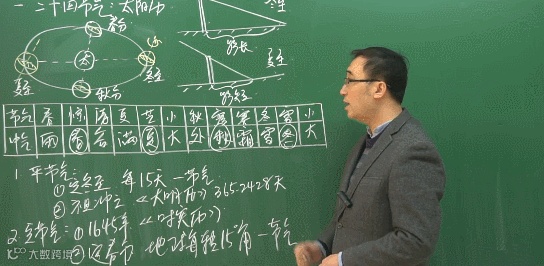 一 二十四节气：太阳历
春分
太
夏至
冬至
秋分
冬至
影长
夏至
影短
节气 春 惊 清 夏 芒 小 秋 寒 立 雪 小
恰 雨 春 谷 满 夏 大 处 秋 霜 雪 冬 大
1. 平节气：
① 定冬至 每15天一节气
② 祖冲之 《大明历》 365.2428天
2. 定节气：① 1645年 《时宪历》
② 定春分 地球每转15°角一节气
大数跨境